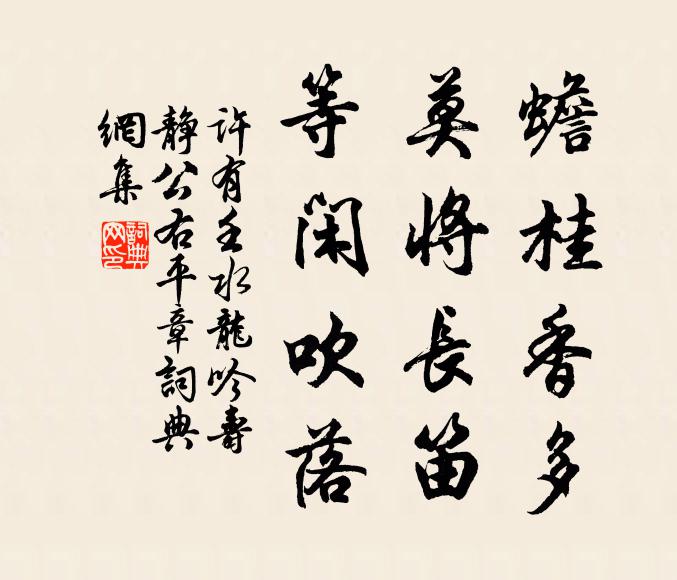 蟾桂香多
莫將長笛
等閑吹落
許有壬水龍吟壽
靜公右平章詞典
網集
詞典
网印